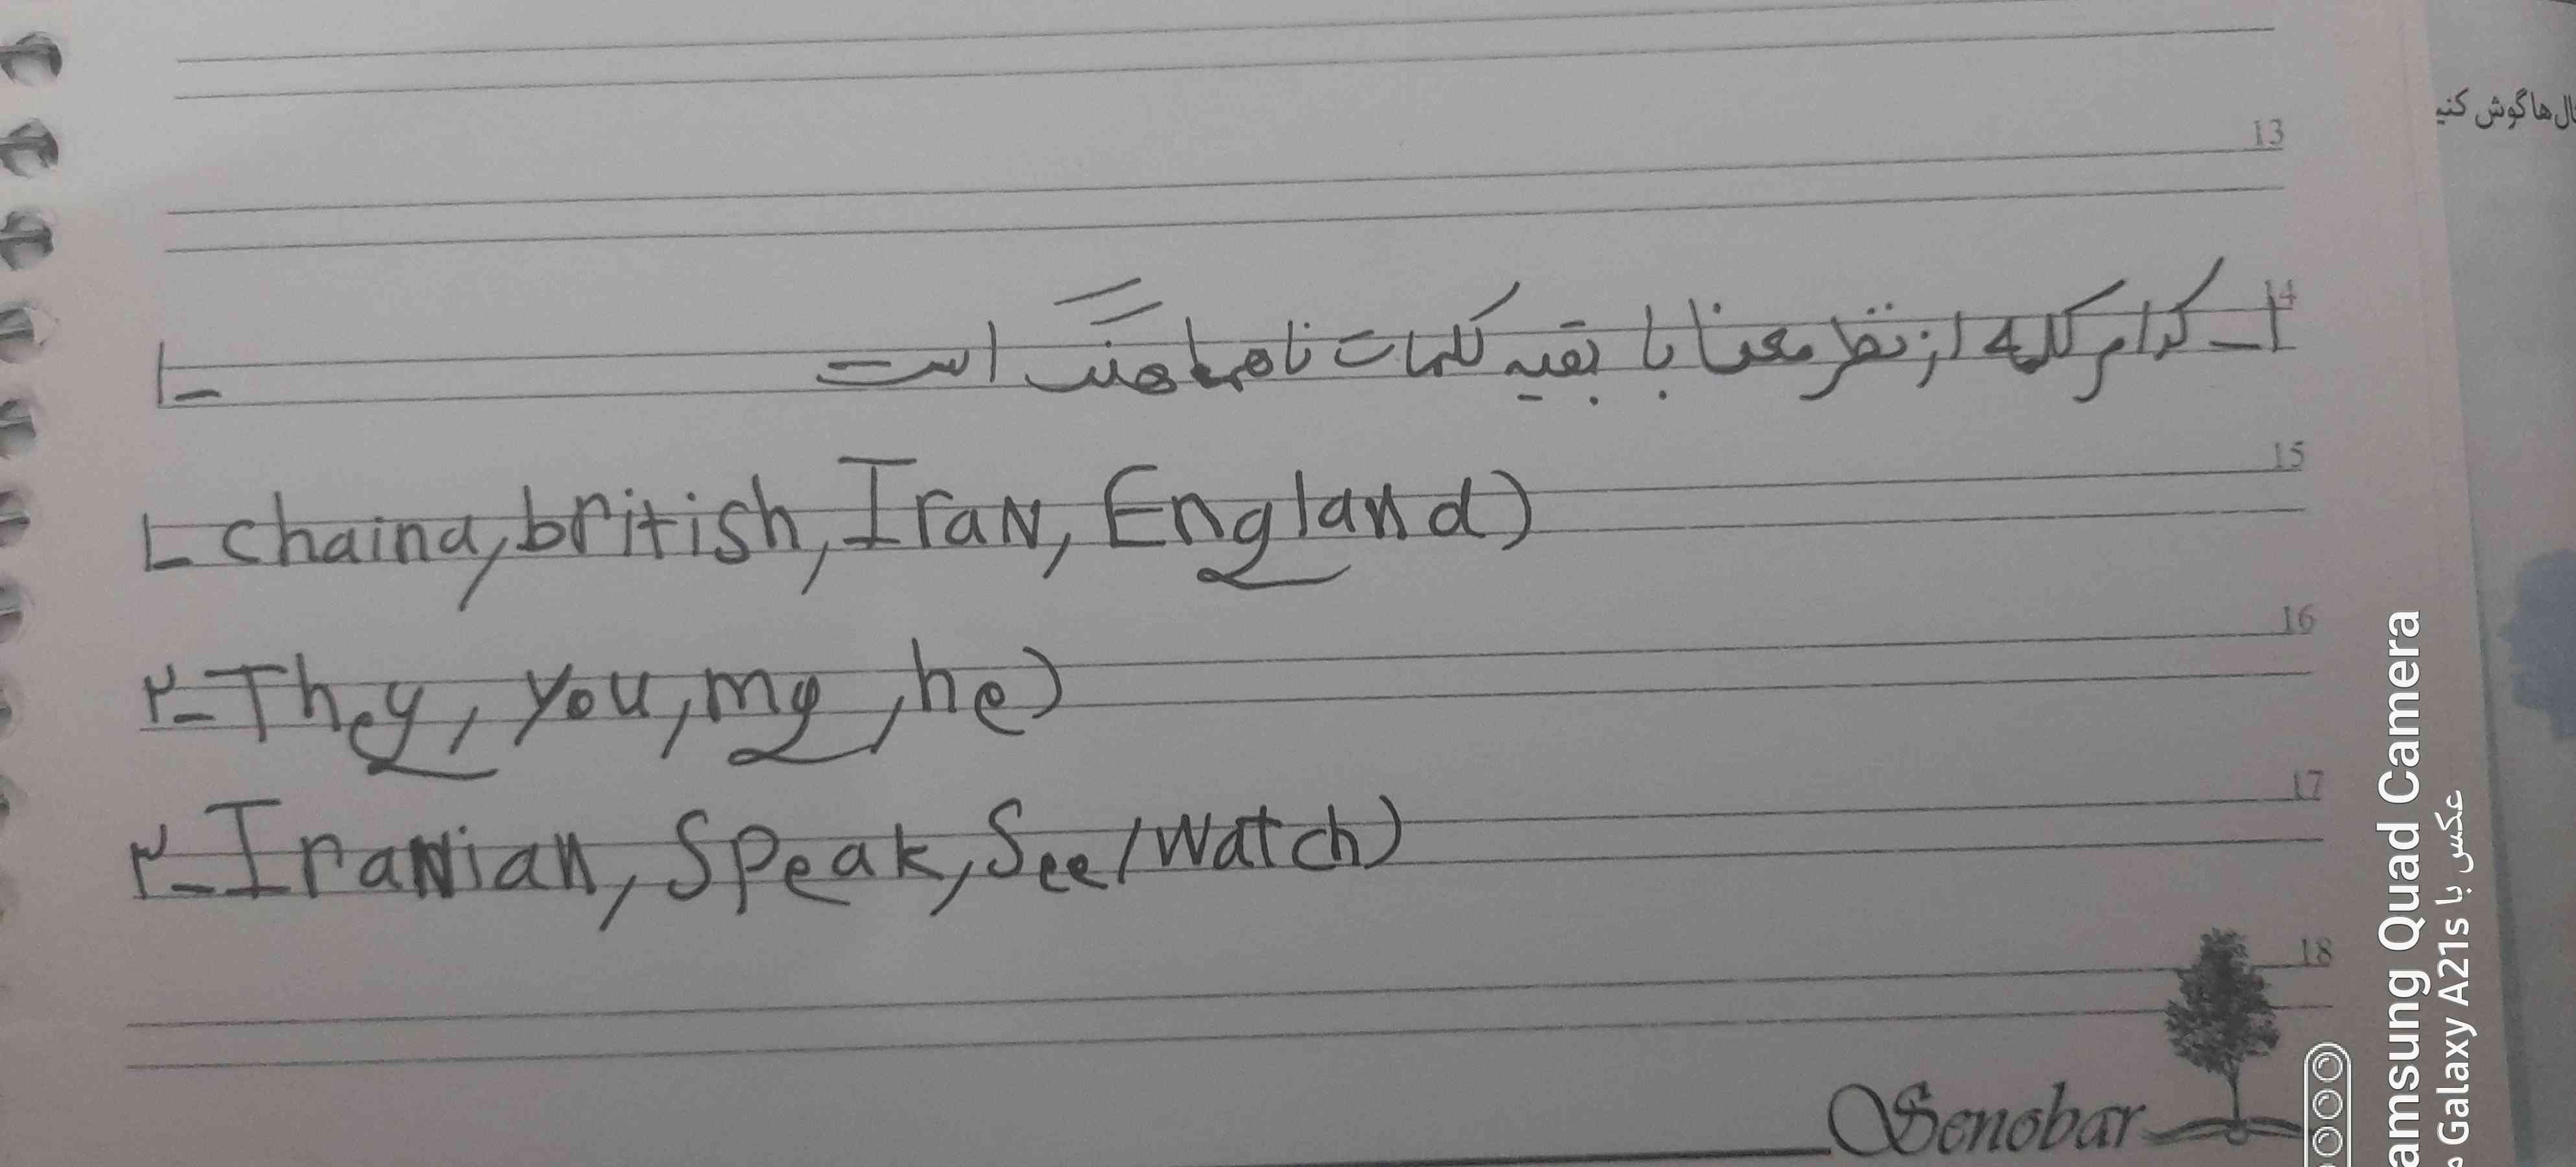 ال ها گوش کنی
13
14
۱_ کدام کلمه از نظر معنا با بقیه کلمات ناهماهنگ است
15
1_ chaina, british, Iran, England)
16
۲_ They, you, my, he)
17
۳_ Iranian, Speak, See/Watch)
18
Senobar
amsung Quad Camera
عکس با Galaxy A21s